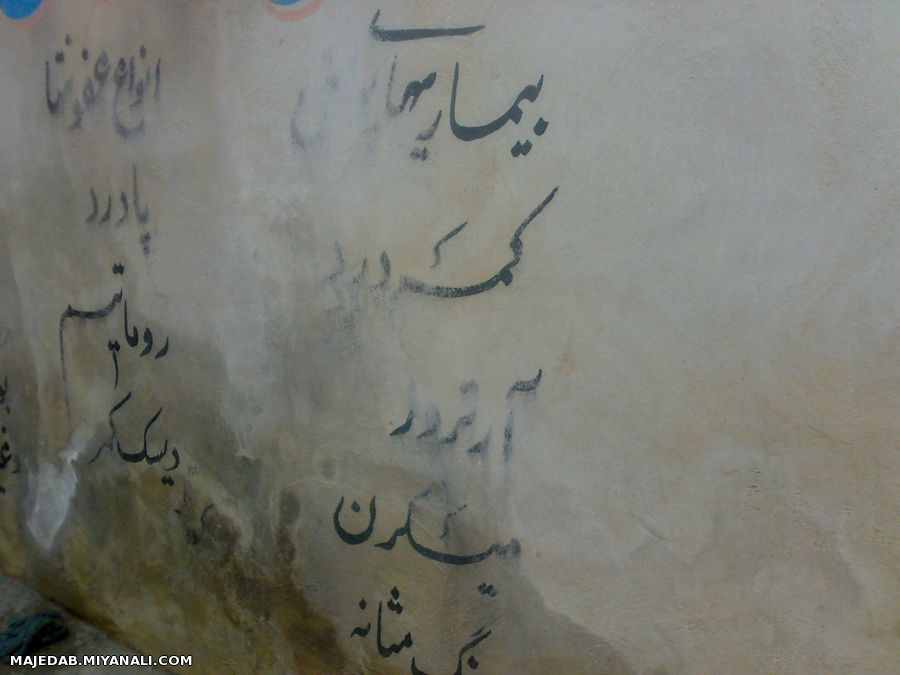 بیماریهای
کمردرد
آرتروز
میگرن
سنگ مثانه
انواع عفونتها
پادرد
روماتیسم
دیسک کمر
MAJEDAB.MIYANALI.COM